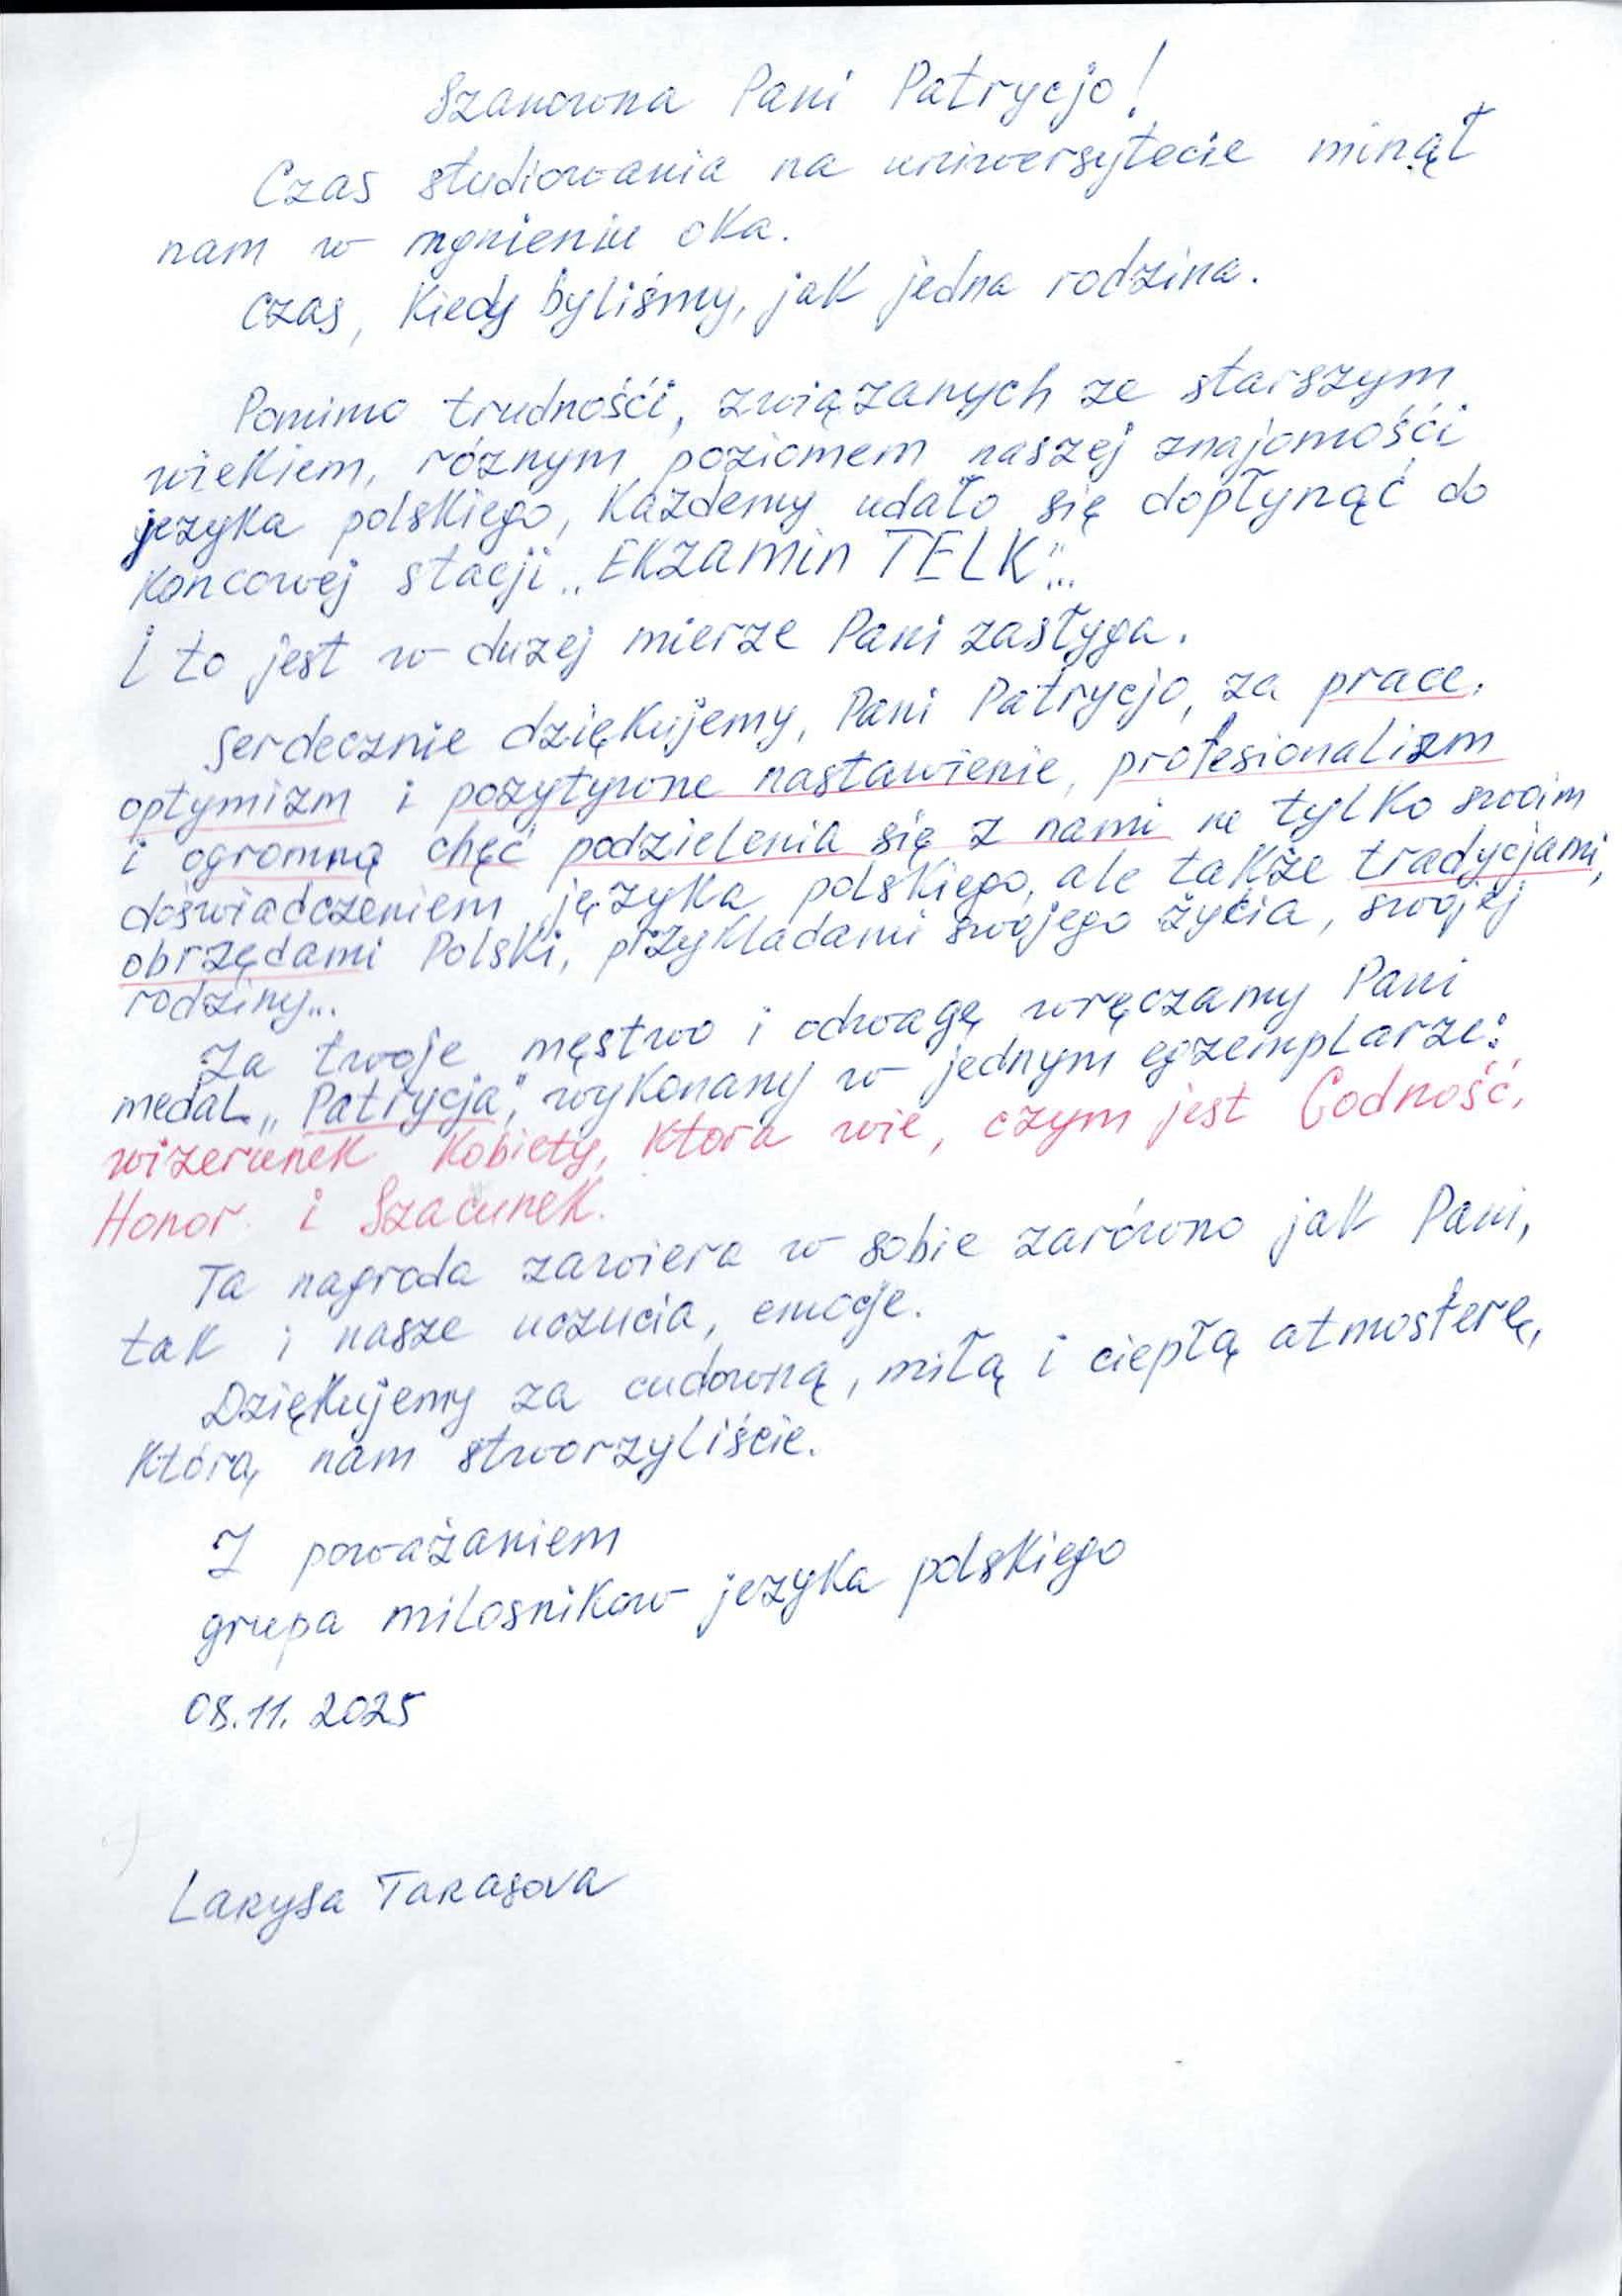 Szanowna Pani Patrycjo!
Czas studiowania na uniwersytecie minął
nam w mgnieniu oka.
Czas, Kiedy byliśmy, jak jedna rodzina.
Pomimo trudnośći, związanych ze starszym
wiekiem, różnym poziomem naszej znajomośći
jezyka polskiego, Każdemy udało się dopłynąć do
Koncowej stacji „EKZamin TELK"...
I to jest w dużej mierze Pani zasłyga.
Serdecznie dziękujemy, Pani Patrycjo, za prace,
optymizm i pozytywne nastawienie, profesionalizm
i ogromną chęć podzielenia się z nami ne tylko swoim
doświadczeniem języka polskiego, ale także tradycjami,
obrzędami Polski, przykladami swojego życia, swojej
rodziny...
Za twoje męstwo i odwagę wręczamy Pani
medal „Patrycja", wykonany w jednym egzemplarze:
wizerunek Kobiety, Ktora wie, czym jest Godność,
Honor i Szacunek.
Ta nagroda zawiera w sobie zarówno jak Pani,
tak i nasze uczucia, emocje.
Dziękujemy za cudowną, miłą i ciepłą atmosferę,
Którą nam stworzyliście.
Z poważaniem
grupa milosnikow jezyka polskiego
08.11.2025
Larysa Tarasova